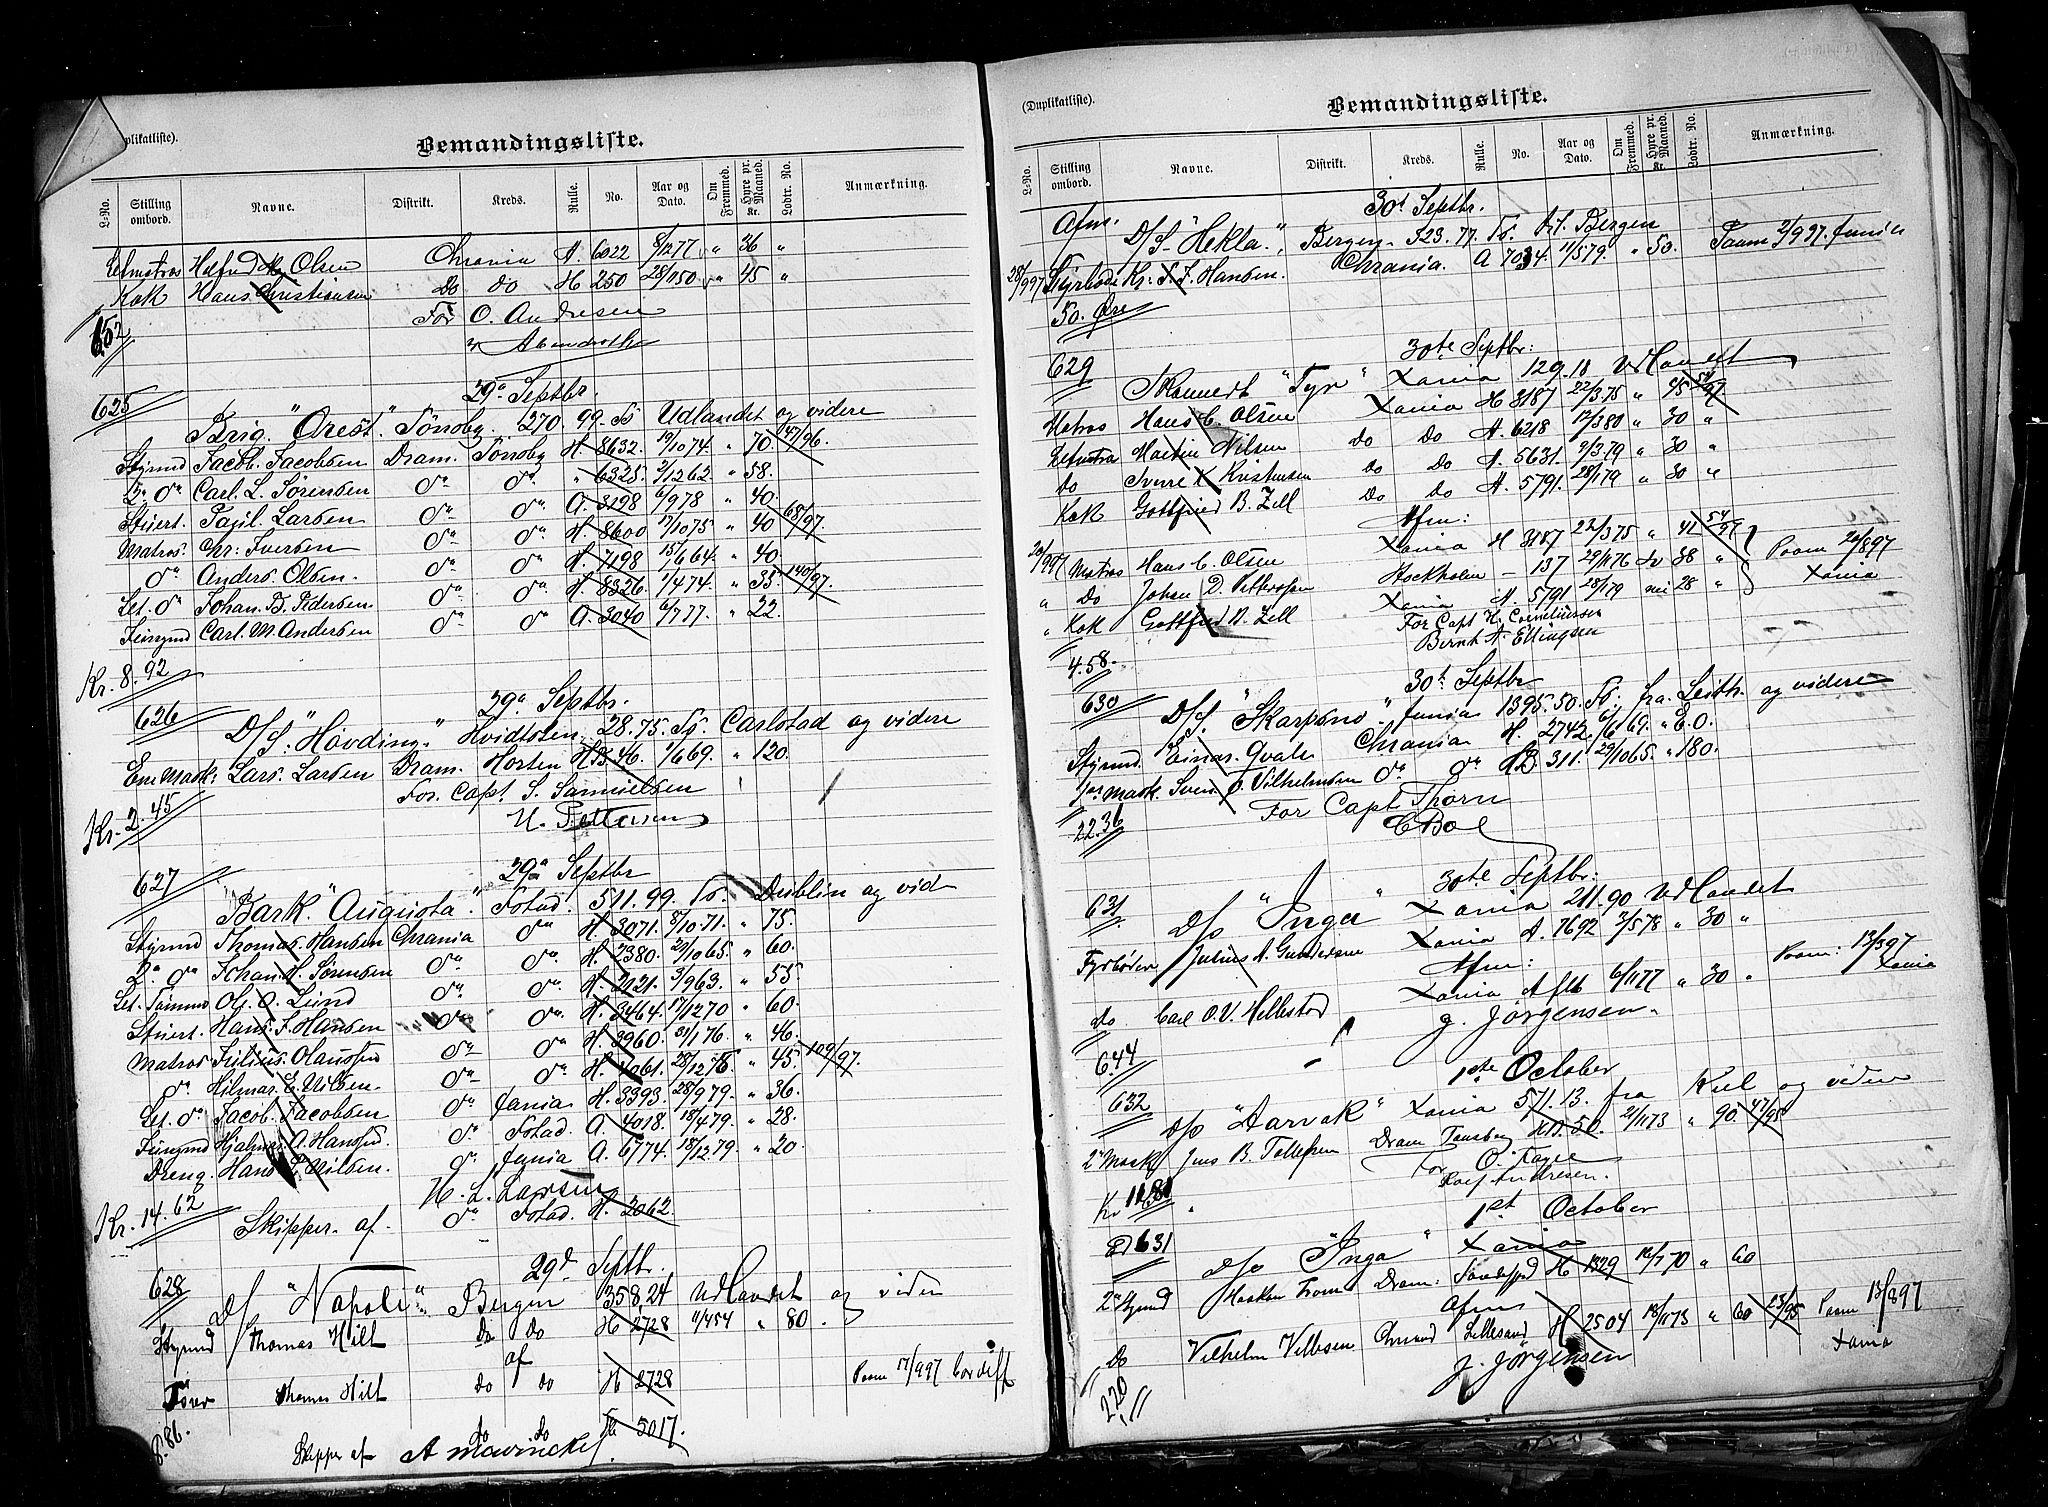 (Duplikatliste).
Bemandingsliste.
L-No. Stilling ombord. Navne. Distrikt. Kreds. Rulle. No. Aar og Dato. Om Fremmed. Hyre pr. Maaned. Kr. Lodtr. No. Anmærkning.
Letmatros Olsen Chrania A. 6022 8/12 77 " 36 "
Kok Hans Christiansen Do do H 250 28/11 50 " 45 "
For O. Andresen
625
29d Septbr.
Brig. "Orest" Tönsbg. 270.99. To Udlandet og videre
Styrmd Jacob. Jacobsen Dram. Tönsbg H. 8632. 19/10 74. " 70. 147/96.
2n do Carl. L. Sörensen do do " 6325. 2/12 62 " 58.
Stuert. Larsen do do A. 3198 6/9 78 " 40.
Matros. Chr: Iversen do do H. 8600 17/10 75 " 40 68/97.
do Anders. Olsen. do do H. 7198 15/6 64. " 40.
Let. do Johan. B. Pedersen do do H. 8326. 1/4 74. " 35. 140/97.
Jungmd Carl. M. Andersen do do A. 3040 6/7 77. " 22.
Kr. 8.92
626
29d Septbr.
D/S. "Hövding." Hvidtsten. 28.75. To. Carlstad og videre
Ene Mask: Lars. Larsen Dram. Horten 46. 1/6 69. " 120.
For. Capt. S. Samuelsen
Kr. 2.45
627
29d Septbr
Bark "Augusta." Fstad. 511.99. To. Dublin og vid
Styrmd Thomas. Hansen Chrania do H. 3071. 8/10.71. " 75.
2n do Johan. H. Sörensen do do H. 2380. 29/10 65. " 60.
Let. Tömmd Ol. O. Lund do do H. 2121. 3/9 63. " 55.
Stuert. Hans. J. Hansen do do H. 3464. 17/12 70 " 60.
Matros Julius. Olaussen do do H. 3960. 31/1 76. " 46.
do Hilmar. E. Nilsen. do do H. 4061. 28/12 " 45. 109/97.
Let. do Jacob. Jacobsen do H. 3393. 28/9 79. " 36.
Jungmd Hjalmar. A. Hansen. do Fstad. A. 4018. 18/4 79. " 28.
Dreng. Hans Nilsen. do A. 6774. 18/12 79. " 20.
H. L. Larsen
Kr. 14.62
Skipper. af. do Fstad. H. 2062.
628
29d Septbr.
D/ "Napoli" Bergen 358,24 Udlandet og viden
Styrmd Thomas Hilt Do Do H 2728 11/4 54 " 80.
af
Förer Thomas Hilt do do H 2728 Paam 17/9 97 Cardiff
86.
Skipper af do do 5017.
(Duplikatliste).
Bemandingsliste.
L-No. Stilling ombord. Navne. Distrikt. Kreds. Rulle. No. Aar og Dato. Om Fremmed. Hyre pr. Maaned. Kr. Lodtr. No. Anmærkning.
30t Septbr.
Afm. D/S "Hekla." Bergen. 523.77. To. Bergen
28/9 97 Fyrböder Kr: Hansen. Chrania. A 7034. 11/5 79. " 50. Paam 2/9 97.
50. Öre
629
30te Septbr:
"Tyr" Xania 129.18 Udlandet
Matros Hans C. Olsen Xania H 3187 22/3.75 " 45 54/99.
Letmatra Martin Nilsen do do A. 6218 17/3 80 " 30 "
do Sverre Kristensen do do A. 5631. 9/3.79 " 30 "
Kok Gottfried B. Zell do do A. 5791. 28/1 79 " 30 "
Afm:
Matros Hans C. Olsen Xania H 3187 22/3 75 " 41 54/99
" Do Johan D. Stockholm — 137 29/11 76 38 " Paam 20/8 97
" Kok Gottfried B. Zell Xania A. 5791 28/1 79 nei 28 " Xania
For Capt H. Corneliussen
Bernh A. Ellingsen
4.58.
630
30t Septbr
D/S. "Skarpsno." 1395.50. To. fra. Leith. og videre
Styrmd. Einar. Qvale Chrania H. 2742. 6/6 69. "
1ste Mask. Svend O. Vilhelmsen do do 311. 29/10 65. " 180.
For Capt Thorn
22.36
631.
30te Septbr:
D/S "Inga" Xania 211.90 Udlandet
Fyrböder Julius A. Gundersen Xania A. 7692 7/5 78 " 30 "
Afm:
do Carl O. V. Hellestad Xania A 6/11 77 " 30 " Paam: 13/3 97 Xania
J. Jörgensen.
6.44
1ste October
632
D/S "Aarvak" Xania 571.13. fra Kiel og viden
2n Mask Jens B. Tollefsen Dram Tönsberg 50. 21/11 73 " 90. 47/95
For
Andresen.
Kr 11.81
1st October
631
D/S "Inga" Xania
2n Styrmd Haakon Dram. Sandefjord H 1329 16/1 70 " 60
Afm
Do Vilhelm Chrsand Lillesand H 2504 18/11 73 " 60 25/95 Paam 13/8 97 Xania
J. Jörgensen
2.20